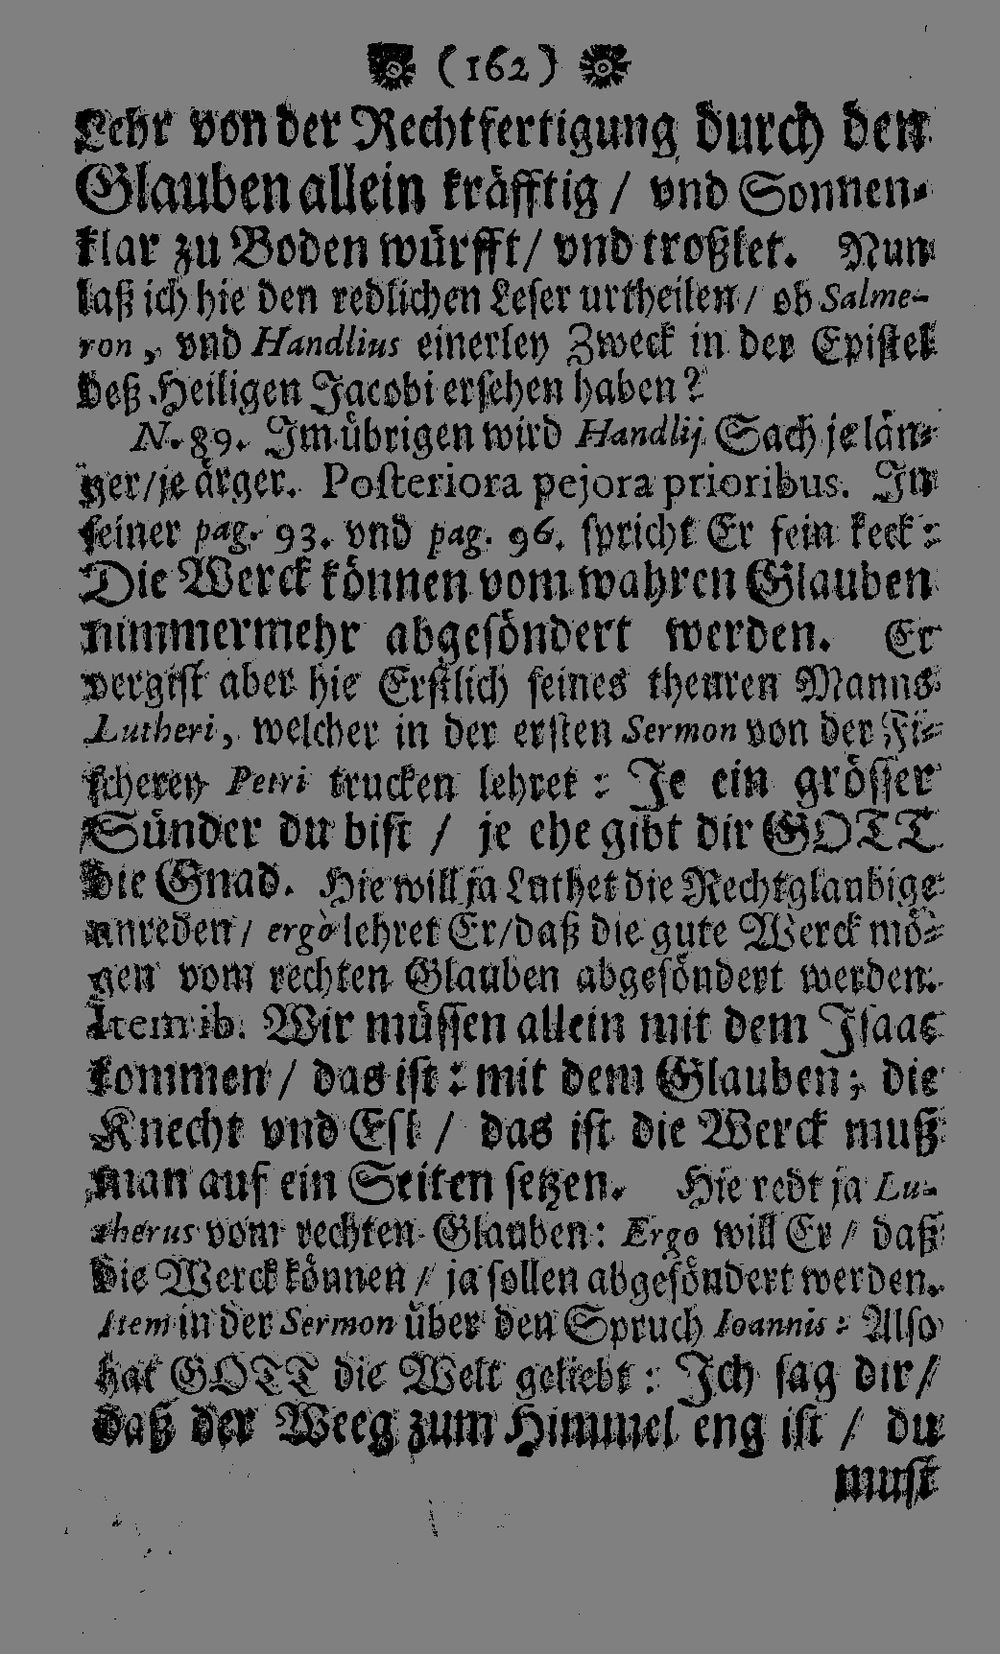 (162)
Lehr von der Rechtfertigung durch den
Glauben allein kräfftig / vnd Sonnen-
klar zu Boden würfft / vnd troßlet. Nun
laß ich hie den redlichen Leser urtheilen / ob Salme-
ron, vnd Handlius einerley Zweck in der Epistel
deß Heiligen Jacobi ersehen haben?
N. 89. Im übrigen wird Handlij Sach je län-
ger / je ärger. Posteriora pejora prioribus. In
seiner pag. 93. vnd pag. 96. spricht Er fein keck:
Die Werck können vom wahren Glauben
nimmermehr abgesöndert werden. Er
vergist aber hie Erstlich seines theuren Manns
Lutheri, welcher in der ersten Sermon von der Fi-
scherey Petri trucken lehret: Je ein grösser
Sünder du bist / je ehe gibt dir GOTT
die Gnad. Hie will ja Luther die Rechtglaubige
anreden / ergò lehret Er / daß die gute Werck mö-
gen vom rechten Glauben abgesöndert werden.
Item ib. Wir müssen allein mit dem Isaac
kommen / das ist: mit dem Glauben; die
Knecht vnd Esl / das ist die Werck muß
man auf ein Seiten setzen. Hie redt ja Lu-
therus vom rechten Glauben: Ergo will Er / daß
die Werck können / ja sollen abgesöndert werden.
Item in der Sermon über den Spruch Ioannis: Also
hat GOTT die Welt geliebt: Ich sag dir /
daß der Weeg zum Himmel eng ist / du
must